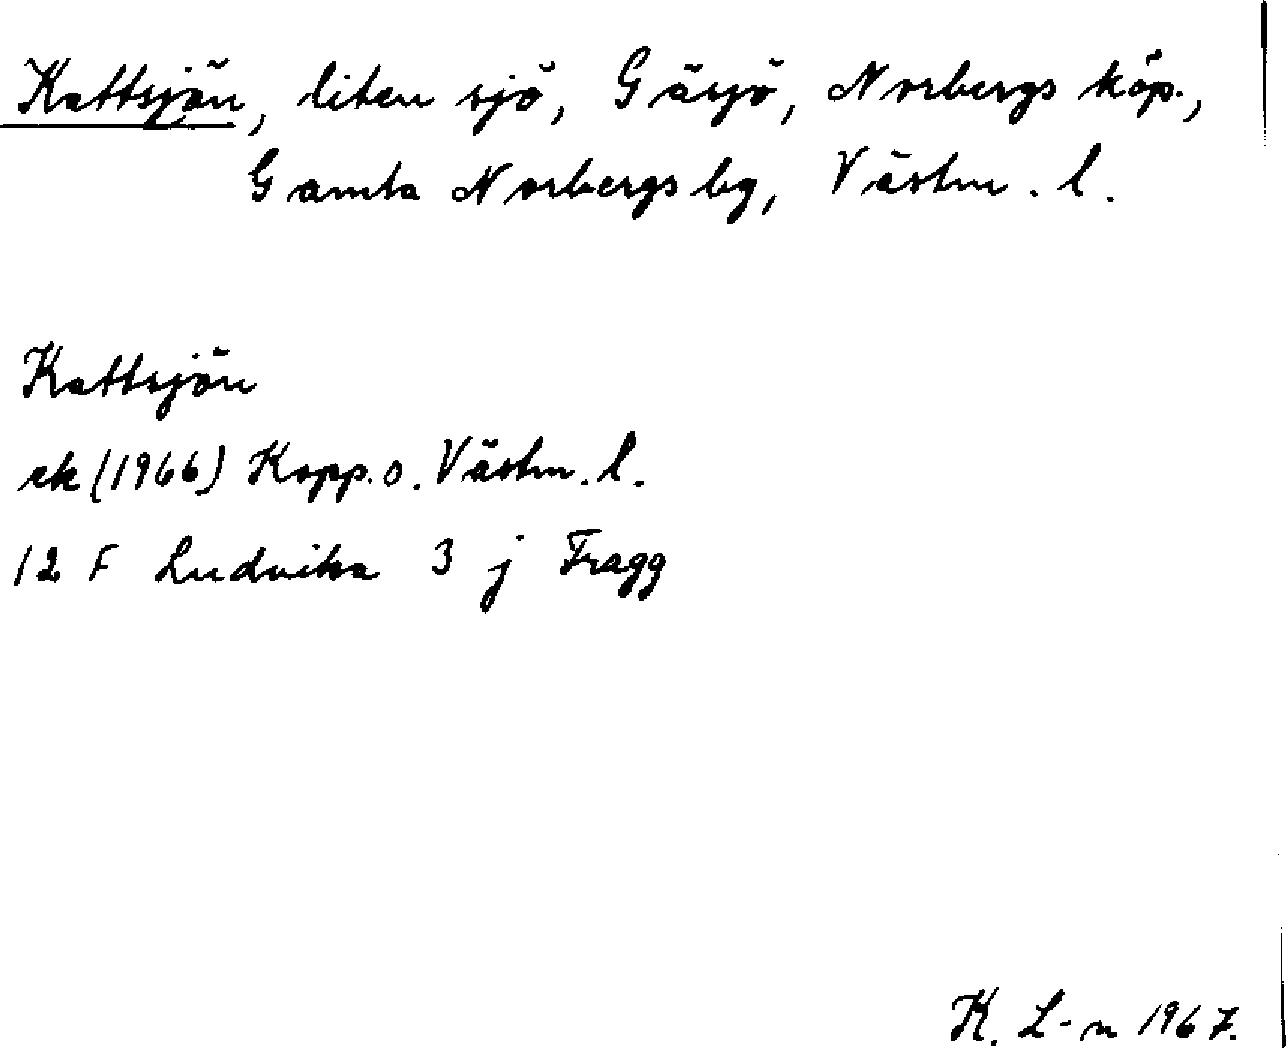 Kattsjön, liten sjö, Gäsjö, Norbergs köp.,
Gamla Norbergs bg, Västm. l.
Kattsjön
ek (1966) Kopp. o. Västm. l.
12 F Ludvika 3 j Fragg
K. L-n 1967.